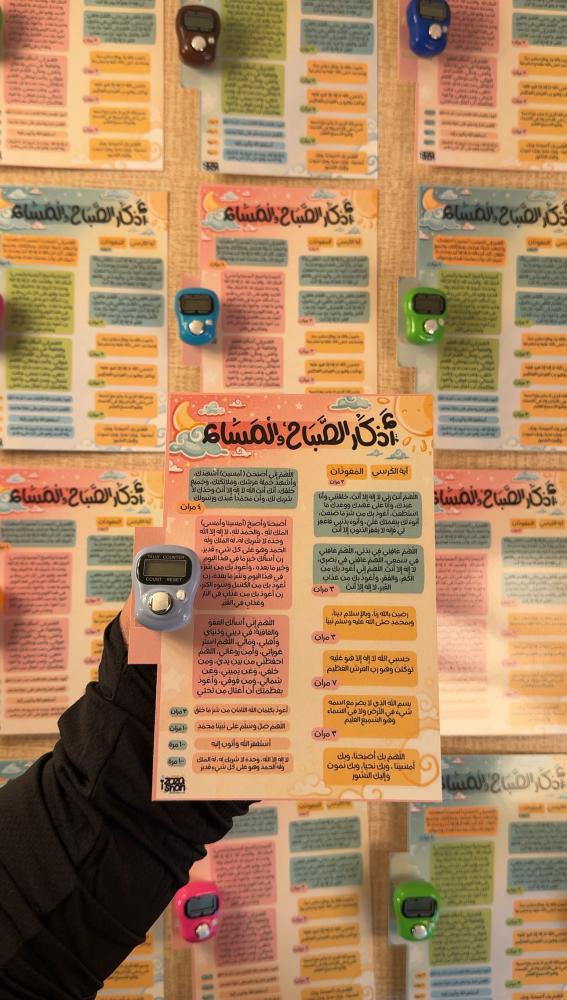 أذكار الصباح والمساء
آية الكرسي
المعوذات
٣ مرات
اللهم أنت ربي لا إله إلا أنت، خلقتني وأنا
عبدك، وأنا على عهدك ووعدك ما
استطعت، أعوذ بك من شر ما صنعت،
أبوء لك بنعمتك علي، وأبوء بذنبي فاغفر
لي فإنه لا يغفر الذنوب إلا أنت
اللهم عافني في بدني، اللهم عافني
في سمعي، اللهم عافني في بصري،
لا إله إلا أنت، اللهم إني أعوذ بك من
الكفر، والفقر، وأعوذ بك من عذاب
القبر، لا إله إلا أنت
٣ مرات
رضيت بالله ربا، وبالإسلام دينا،
وبمحمد صلى الله عليه وسلم نبيا
٣ مرات
حسبي الله لا إله إلا هو عليه
توكلت وهو رب العرش العظيم
٧ مرات
بسم الله الذي لا يضر مع اسمه
شيء في الأرض ولا في السماء
وهو السميع العليم
٣ مرات
اللهم بك أصبحنا، وبك
أمسينا، وبك نحيا، وبك نموت
وإليك النشور
اللهم إني أصبحت (أمسيت) أشهدك،
وأشهد حملة عرشك، وملائكتك، وجميع
خلقك، أنك أنت الله لا إله إلا أنت وحدك لا
شريك لك، وأن محمدا عبدك ورسولك
٤ مرات
أصبحنا وأصبح (أمسينا وأمسى)
الملك لله ، والحمد لله ، لا إله إلا الله
وحده لا شريك له، له الملك وله
الحمد وهو على كل شيء قدير،
رب أسألك خير ما في هذا اليوم
وخير ما بعده ، وأعوذ بك من شر ما
في هذا اليوم وشر ما بعده، رب
أعوذ بك من الكسل وسوء الكبر،
رب أعوذ بك من عذاب في النار
وعذاب في القبر
اللهم إني أسألك العفو
والعافية: في ديني ودنياي
وأهلي، ومالي، اللهم استر
عوراتي، وآمن روعاتي، اللهم
احفظني من بين يدي، ومن
خلفي، وعن يميني، وعن
شمالي، ومن فوقي، وأعوذ
بعظمتك أن أغتال من تحتي
أعوذ بكلمات الله التامات من شر ما خلق
٣ مرات
اللهم صل وسلم على نبينا محمد
١٠ مرات
أستغفر الله وأتوب إليه
١٠٠ مرة
لا إله إلا الله، وحده لا شريك له، له الملك
وله الحمد وهو على كل شيء قدير
١٠٠ مرة
TALLY COUNTER
COUNT RESET